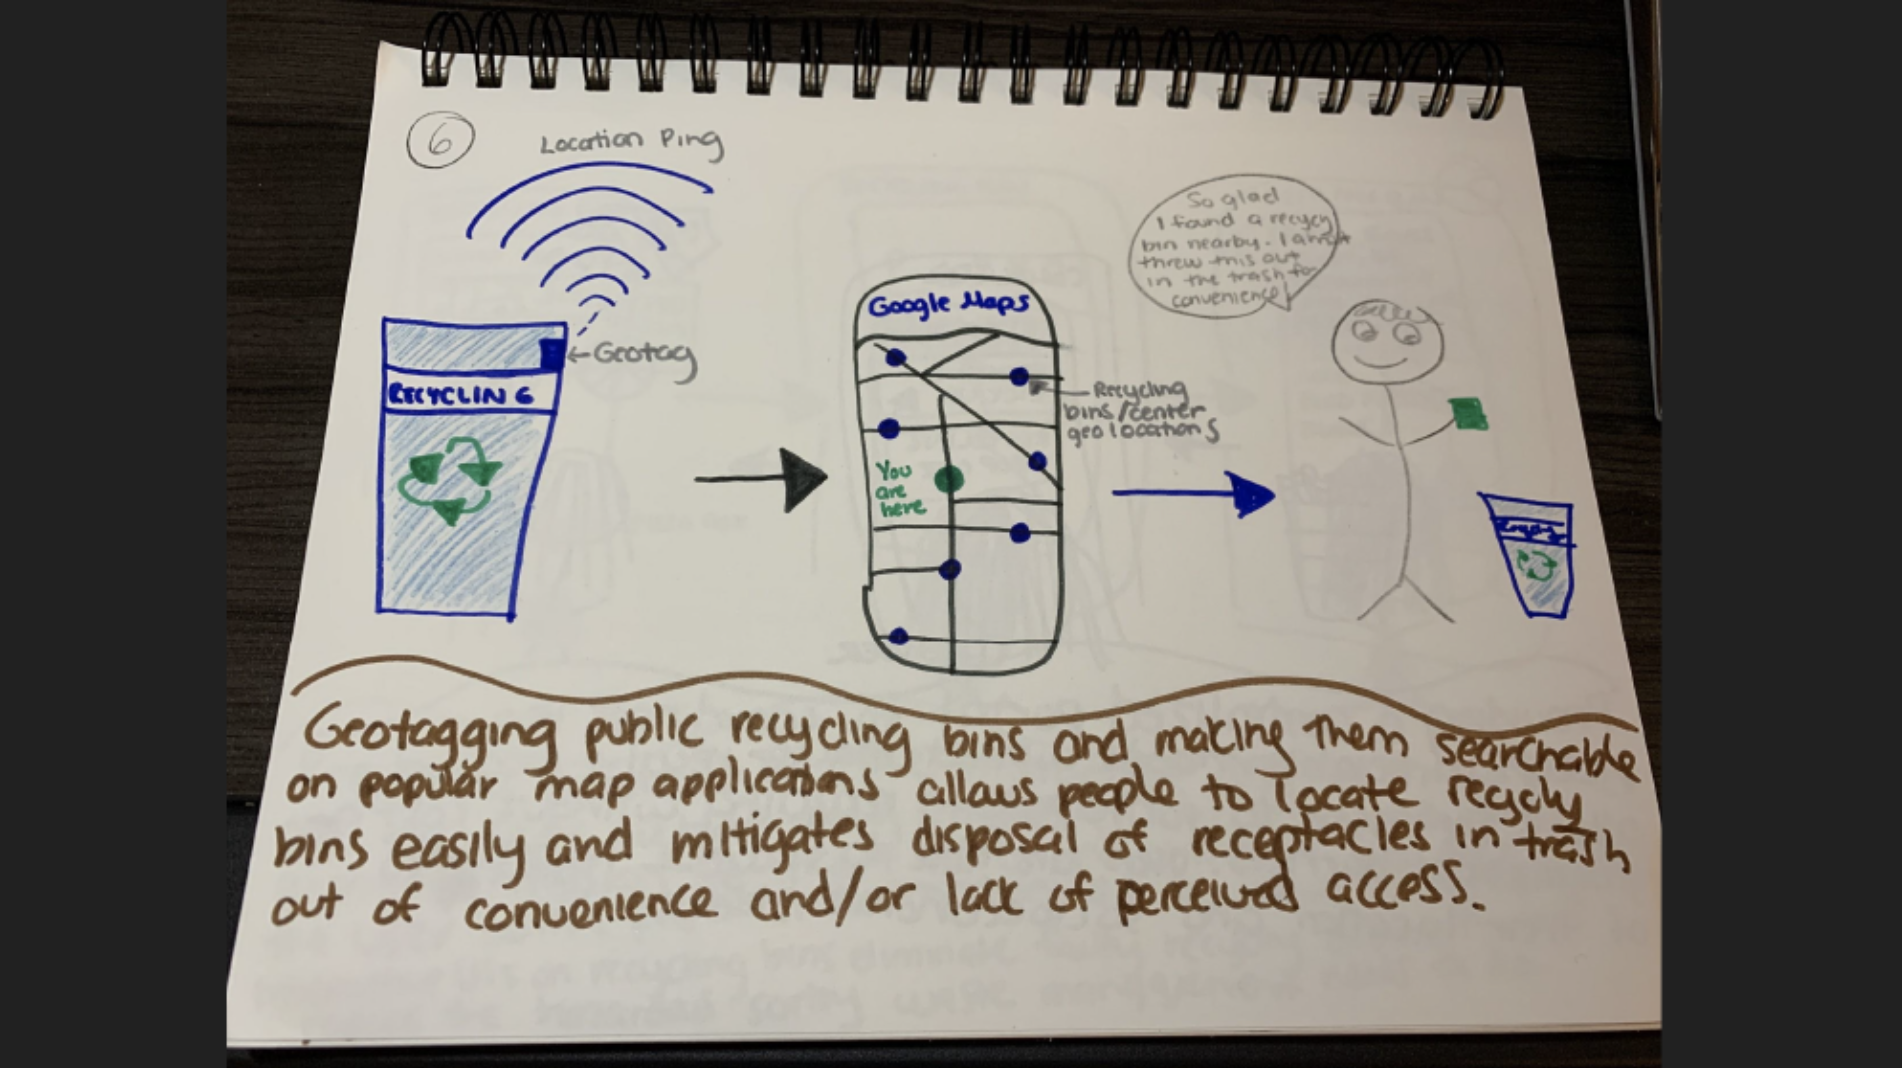 6
Location Ping
Geotag
RECYCLING
Google Maps
You
are
here
Recycling
bins/center
geo locations
So glad
I found a recycg
bin nearby. I
threw this out
in the trash for
convenience!
Geotagging public recycling bins and making them searchable
on popular map applications allows people to locate recycly
bins easily and mitigates disposal of receptacles in trash
out of convenience and/or lack of perceived access.